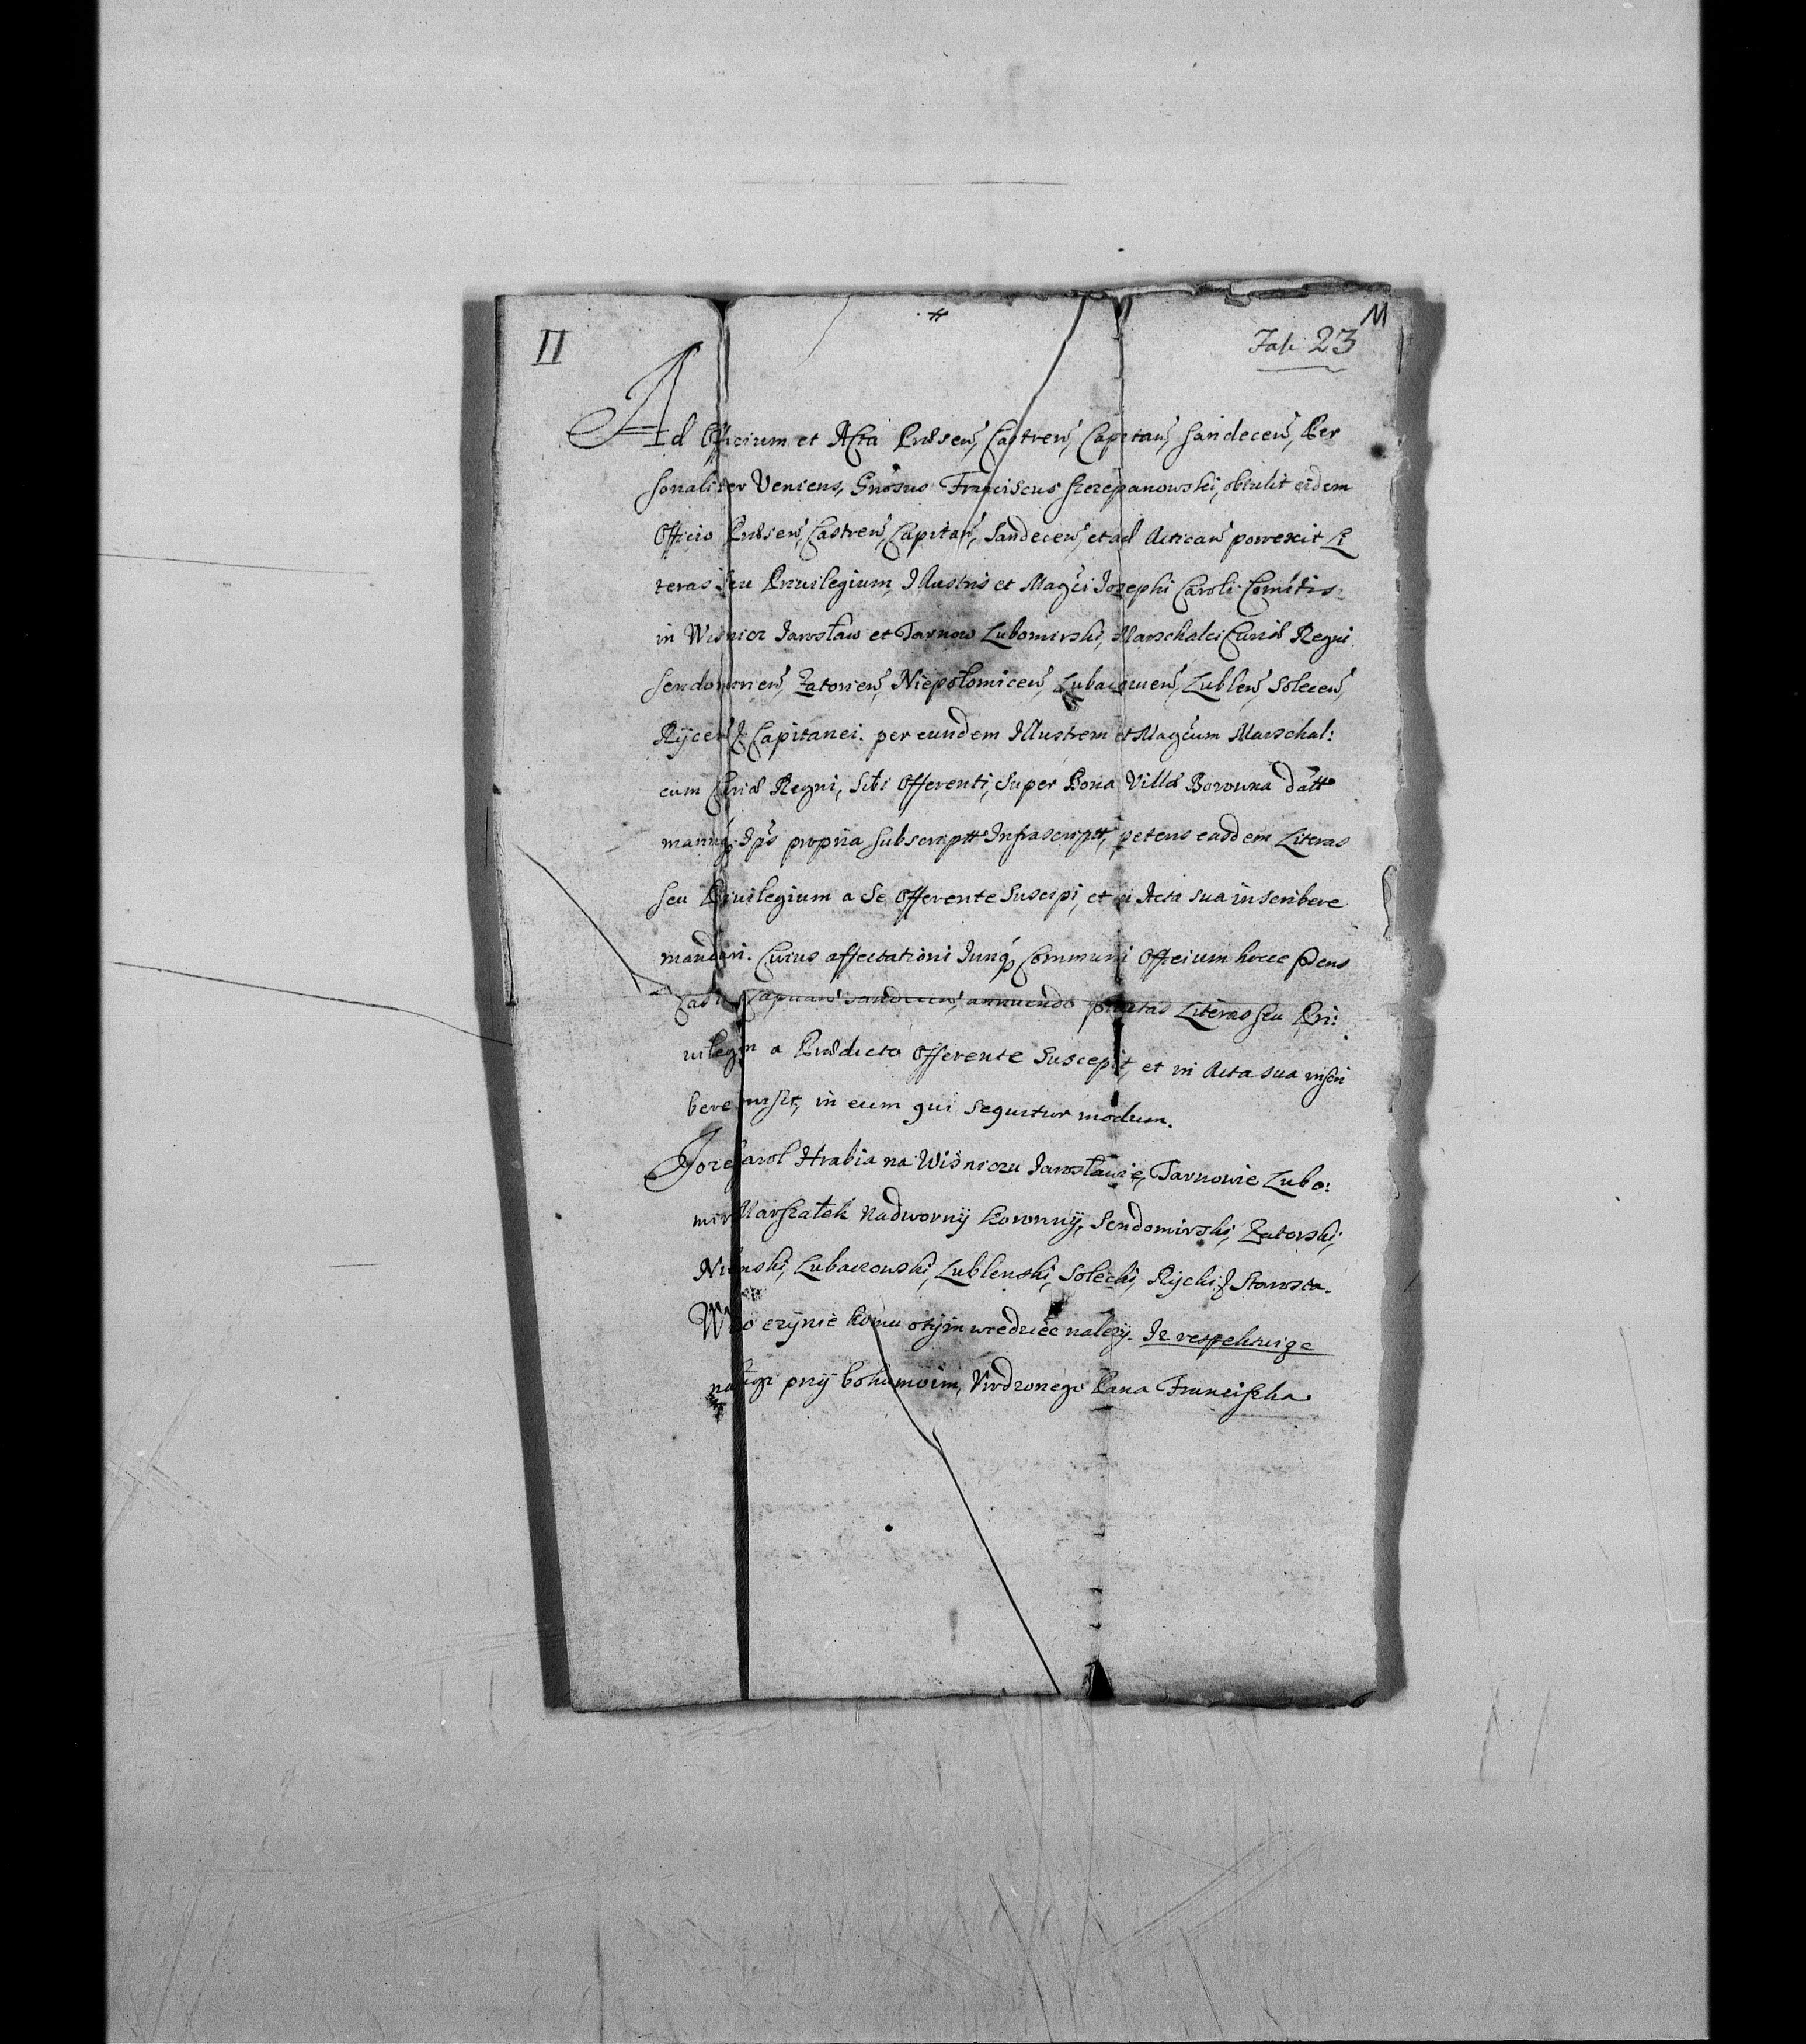 II
Fasc 23
Ad Officium et Acta Præsen, Castren, Capitan, Sandecen, Per
sonaliter Veniens, Gnosus Franciscus Szczepanowski, obtulit eidem
Officio Præsen, Castren, Capitan, Sandecen, et ad Actican porrexit Li
teras seu Privilegium, Illustris et Magci Jozephi Caroli Comitis
in Wisnicz Jarosław et Tarnow Lubomirski, Marschalci Curiæ Regni
Sendomirien, Zatorien, Niepołomicen, Lubaczovien, Lublen, Solecen,
Rÿcen & Capitanei. per eundem Illustrem et Magcum Marschal:
cum Curiæ Regni, Sibi Offerenti, Super Bona Villæ Borowna datt
manuq, Ips propria Subscriptt Infrascriptt, petens easdem Literas
seu Privilegium a Se Offerente Suscipi, et in Acta sua inscribere
mandari. Cuius affectationi Iuriq, Communi Officium hocce præns
Cast Capitan Sandecen, annuendo præfatas Literas seu Pri:
vilegm a Prædicto Offerente Suscepit, et in Acta sua inscri
bere iusit, in eum qui sequitur modum.
Joze Karol Hrabia na Wiśniczu Jarosławie, Tarnowie Lubo:
mir Marszałek Nadwornÿ Koronnÿ, Sendomirski, Zatorski,
Ni nski, Lubaczowski, Lublenski, Solecki, Rÿcki & Starosta.
W o czÿnie komu otÿm wiedzieć nalezÿ. Iz respektuiąc
na ugi przÿ boku moim, Vrodzonego Pana Franciszka